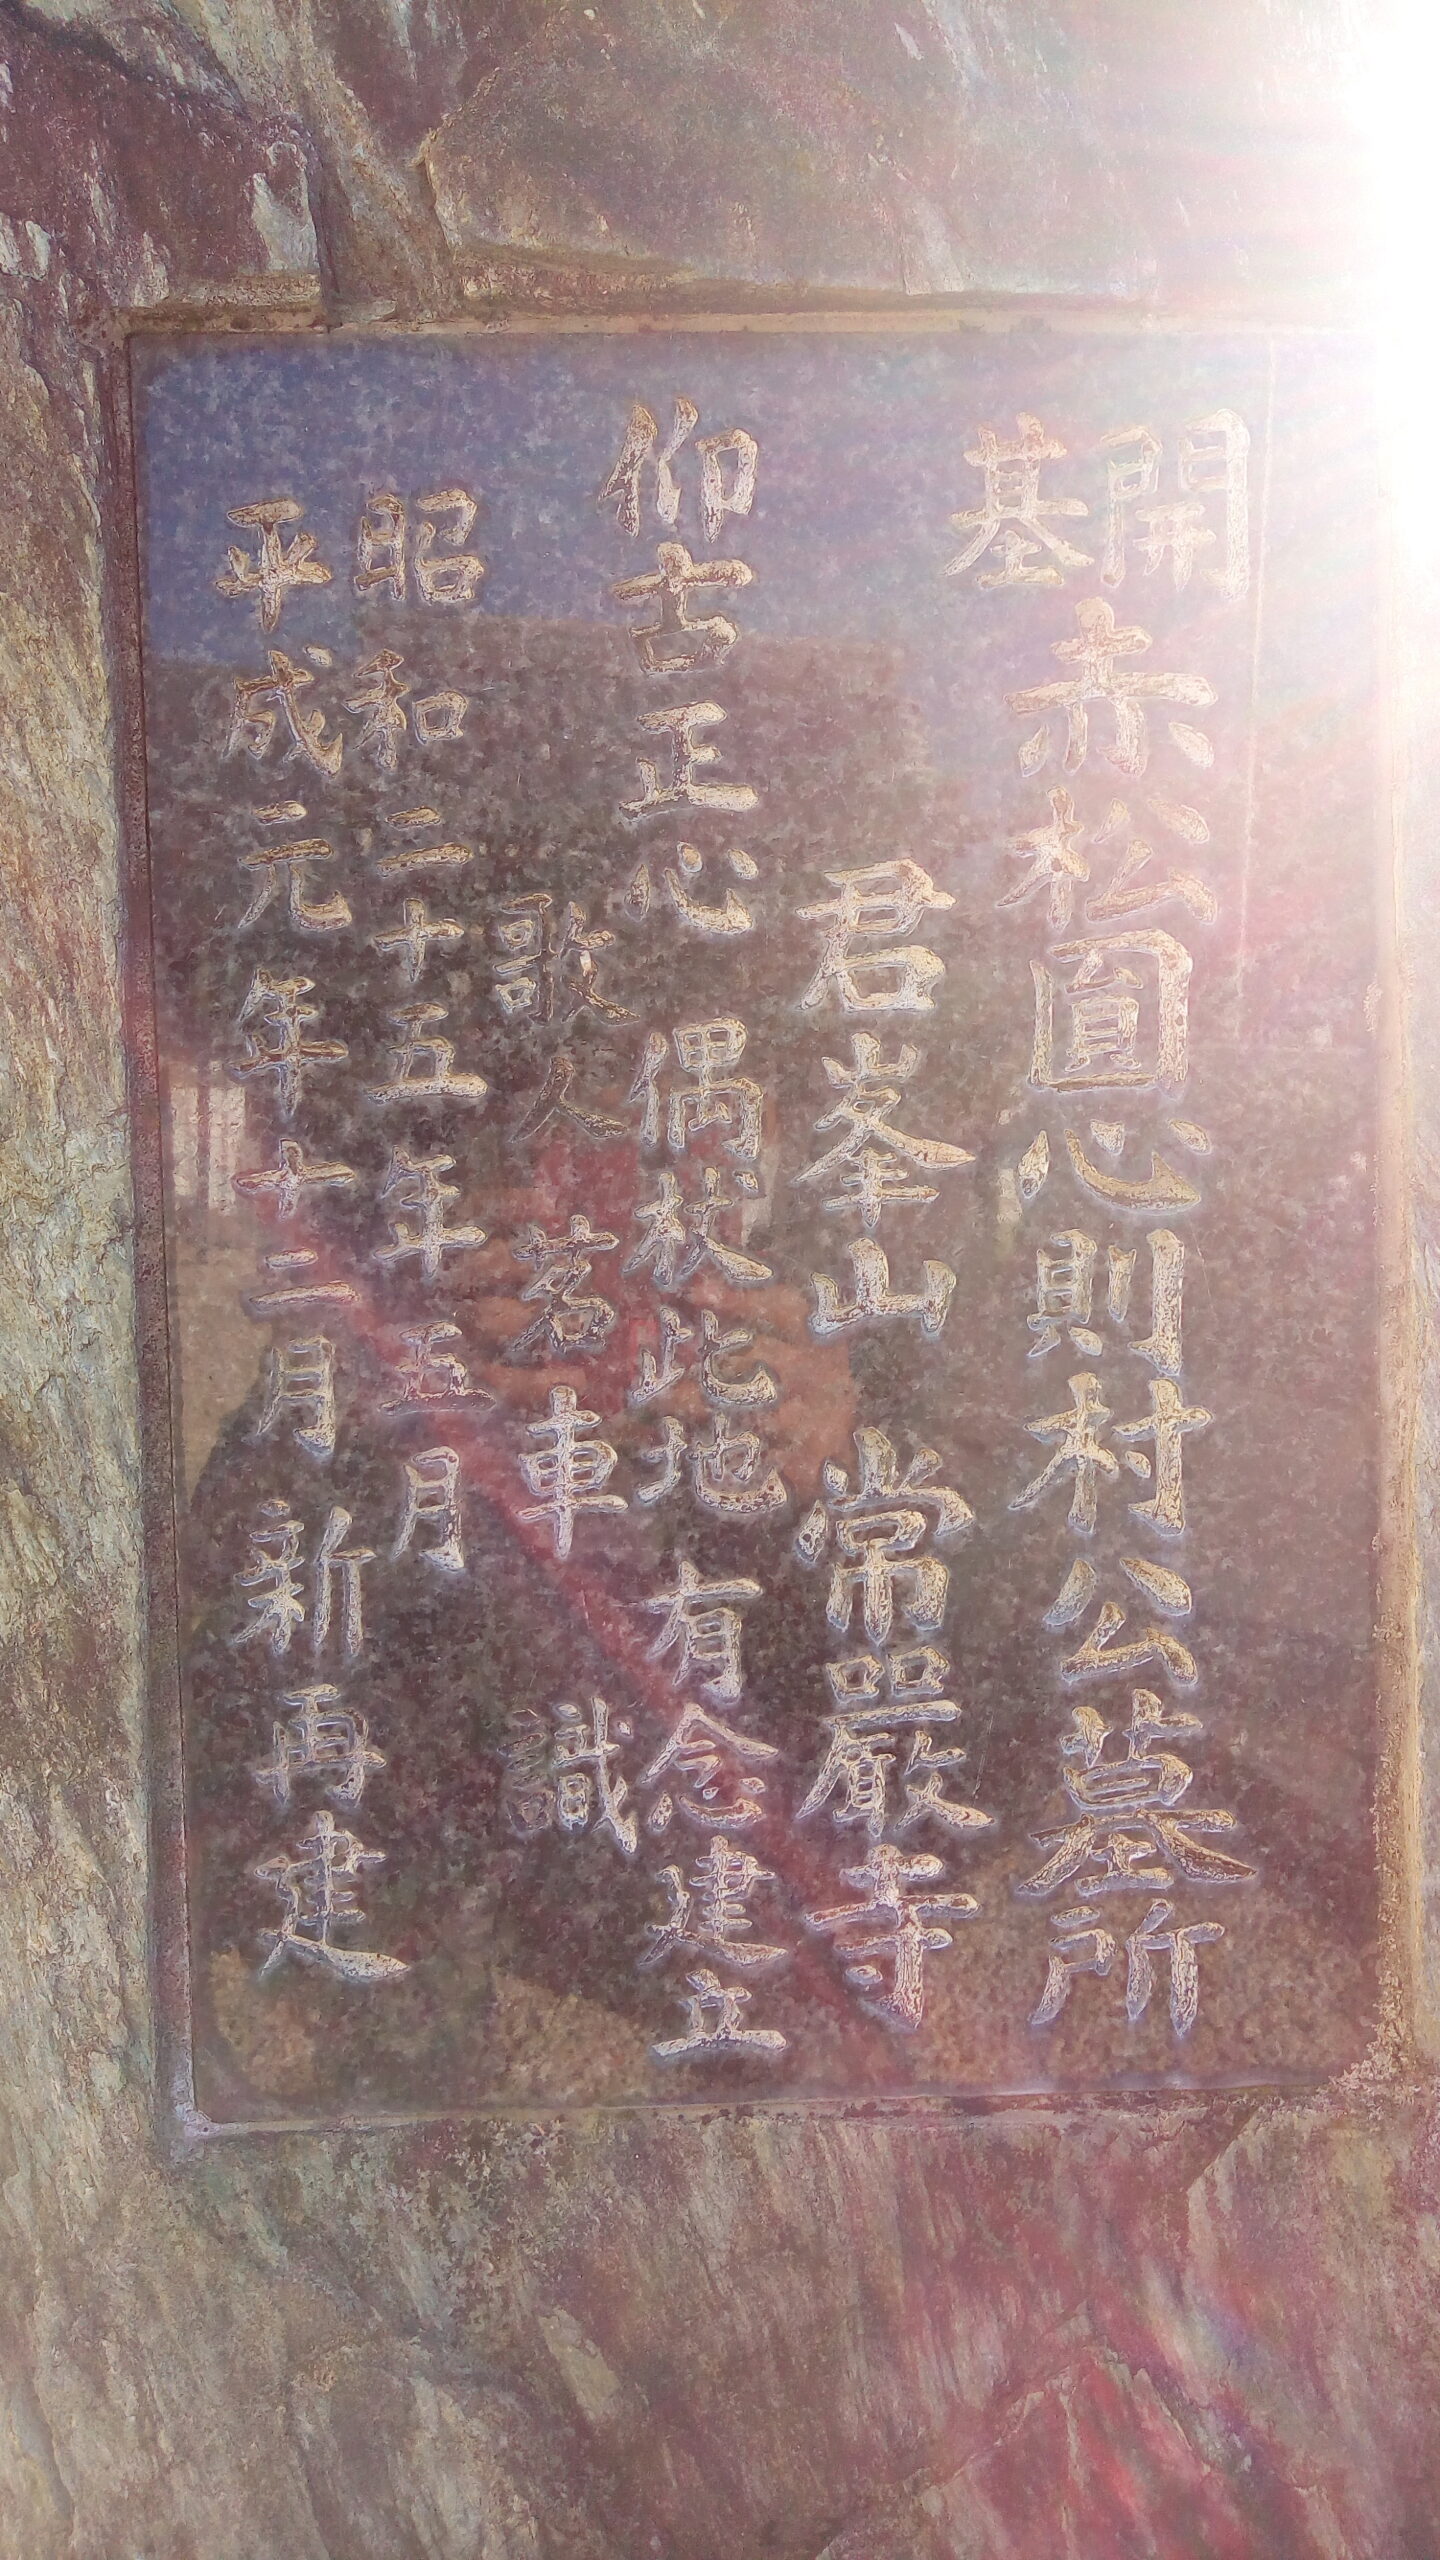 開基
赤松圓心則村公墓所
君峯山 常嚴寺
仰古正心 偶杖此地 有念建立
歌人 茗車 識
昭和二十五年五月
平成元年十二月 新再建